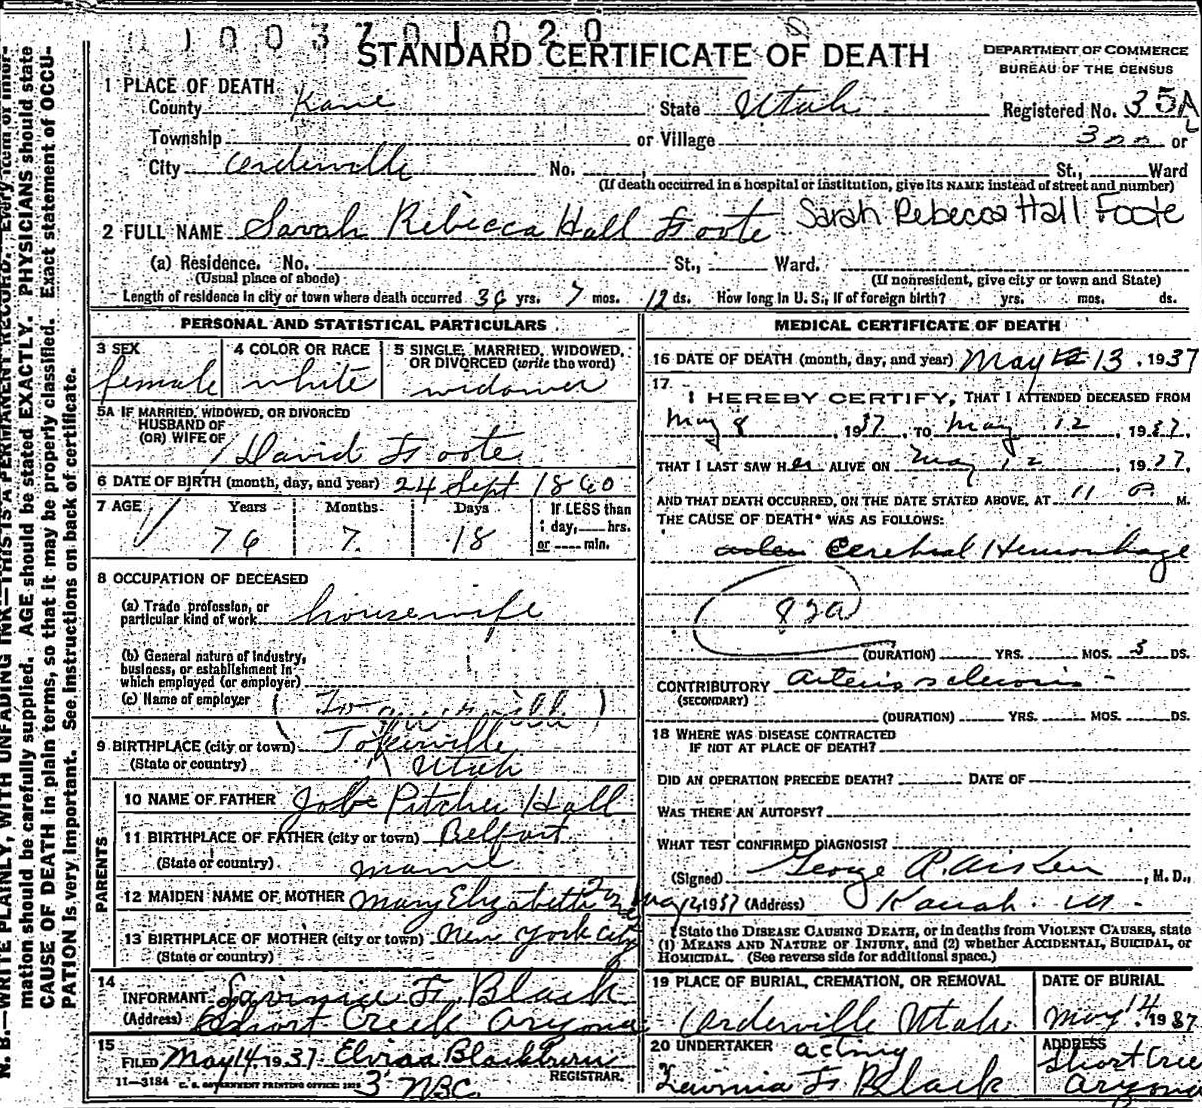 1003701020
STANDARD CERTIFICATE OF DEATH
DEPARTMENT OF COMMERCE
BUREAU OF THE CENSUS
1 PLACE OF DEATH
County Kane State Utah Registered No. 35A
Township or Village 300 or
City Orderville No. St., Ward
(If death occurred in a hospital or institution, give its NAME instead of street and number)
2 FULL NAME Sarah Rebecca Hall Foote Sarah Rebecca Hall Foote
(a) Residence. No. St., Ward.
(Usual place of abode) (If nonresident, give city or town and State)
Length of residence in city or town where death occurred 36 yrs. 7 mos. 12 ds. How long in U. S., if of foreign birth? yrs. mos. ds.
PERSONAL AND STATISTICAL PARTICULARS
3 SEX 4 COLOR OR RACE 5 SINGLE, MARRIED, WIDOWED,
OR DIVORCED (write the word)
female white widower
5A IF MARRIED, WIDOWED, OR DIVORCED
HUSBAND OF
(OR) WIFE OF David Foote
6 DATE OF BIRTH (month, day, and year) 24 Sept 1860
7 AGE Years Months Days If LESS than
1 day, hrs.
or min.
76 7 18
8 OCCUPATION OF DECEASED
(a) Trade profession, or
particular kind of work housewife
(b) General nature of Industry,
business, or establishment in
which employed (or employer)
(c) Name of employer
9 BIRTHPLACE (city or town) Tokerville
(State or country) Utah
PARENTS
10 NAME OF FATHER Jobe Pitcher Hall
11 BIRTHPLACE OF FATHER (city or town) Belfort
(State or country) Mane
12 MAIDEN NAME OF MOTHER Mary Elizabeth
13 BIRTHPLACE OF MOTHER (city or town) New York City
(State or country)
14
INFORMANT Lavinia F. Black
(Address) Short Creek Aryona
15
FILED May 14, 1937 Elviraa Blackburn
REGISTRAR.
11—3184 U. S. GOVERNMENT PRINTING OFFICE: 3 NBC
MEDICAL CERTIFICATE OF DEATH
16 DATE OF DEATH (month, day, and year) May 13, 1937
17
I HEREBY CERTIFY, THAT I ATTENDED DECEASED FROM
May 8, 1937, TO May 12, 1937,
THAT I LAST SAW HER ALIVE ON May 12, 1937,
AND THAT DEATH OCCURRED, ON THE DATE STATED ABOVE, AT 11 P. M.
THE CAUSE OF DEATH* WAS AS FOLLOWS:
Cerebral Hemorrhage
82a
(DURATION) YRS. MOS. 5 DS.
CONTRIBUTORY Arteriosclerosis
(SECONDARY)
(DURATION) YRS. MOS. DS.
18 WHERE WAS DISEASE CONTRACTED
IF NOT AT PLACE OF DEATH?
DID AN OPERATION PRECEDE DEATH? DATE OF
WAS THERE AN AUTOPSY?
WHAT TEST CONFIRMED DIAGNOSIS?
(Signed) George R. Aiken, M. D.,
May 12, 1937 (Address) Kanab. Ut.
*State the DISEASE CAUSING DEATH, or in deaths from VIOLENT CAUSES, state
(1) MEANS AND NATURE OF INJURY, and (2) whether ACCIDENTAL, SUICIDAL, or
HOMICIDAL. (See reverse side for additional space.)
19 PLACE OF BURIAL, CREMATION, OR REMOVAL DATE OF BURIAL
Orderville Utah May 14, 1937
20 UNDERTAKER acting ADDRESS
Levinia F. Black Short Cree
Aryona
N. B.—WRITE PLAINLY, WITH UNFADING INK—THIS IS A PERMANENT RECORD. Every item of infor-
mation should be carefully supplied. AGE should be stated EXACTLY. PHYSICIANS should state
CAUSE OF DEATH in plain terms, so that it may be properly classified. Exact statement of OCCU-
PATION is very important. See instructions on back of certificate.